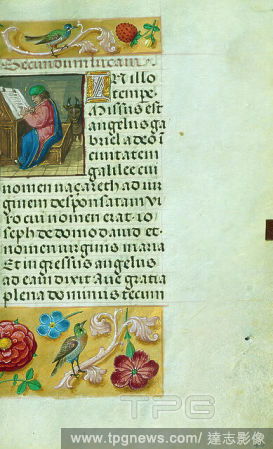 Secundum lucam
In illo
tempe
Missus est
angelus ga
briel a deo i
ciuitatem
galilee cui
nomen nazareth ad uir
ginem desponsatam vi
ro cui nomen erat io
seph de domo dauid et
nomen uirginis maria
Et ingressus angelus
ad eam dixit Aue gratia
plena dominus tecum
TPG
www.tpgnews.com/達志影像